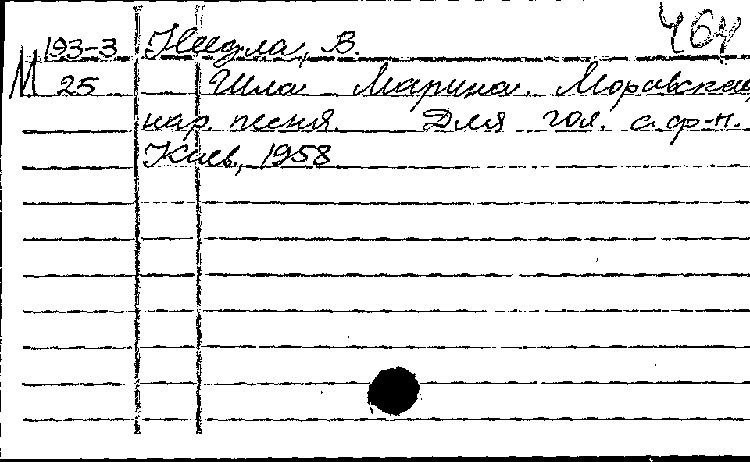 193-3 Нидла, В. 464
М 25 Шла Марина. Моравская
нар. песня. Для гол. с ф-п.
Киев, 1958